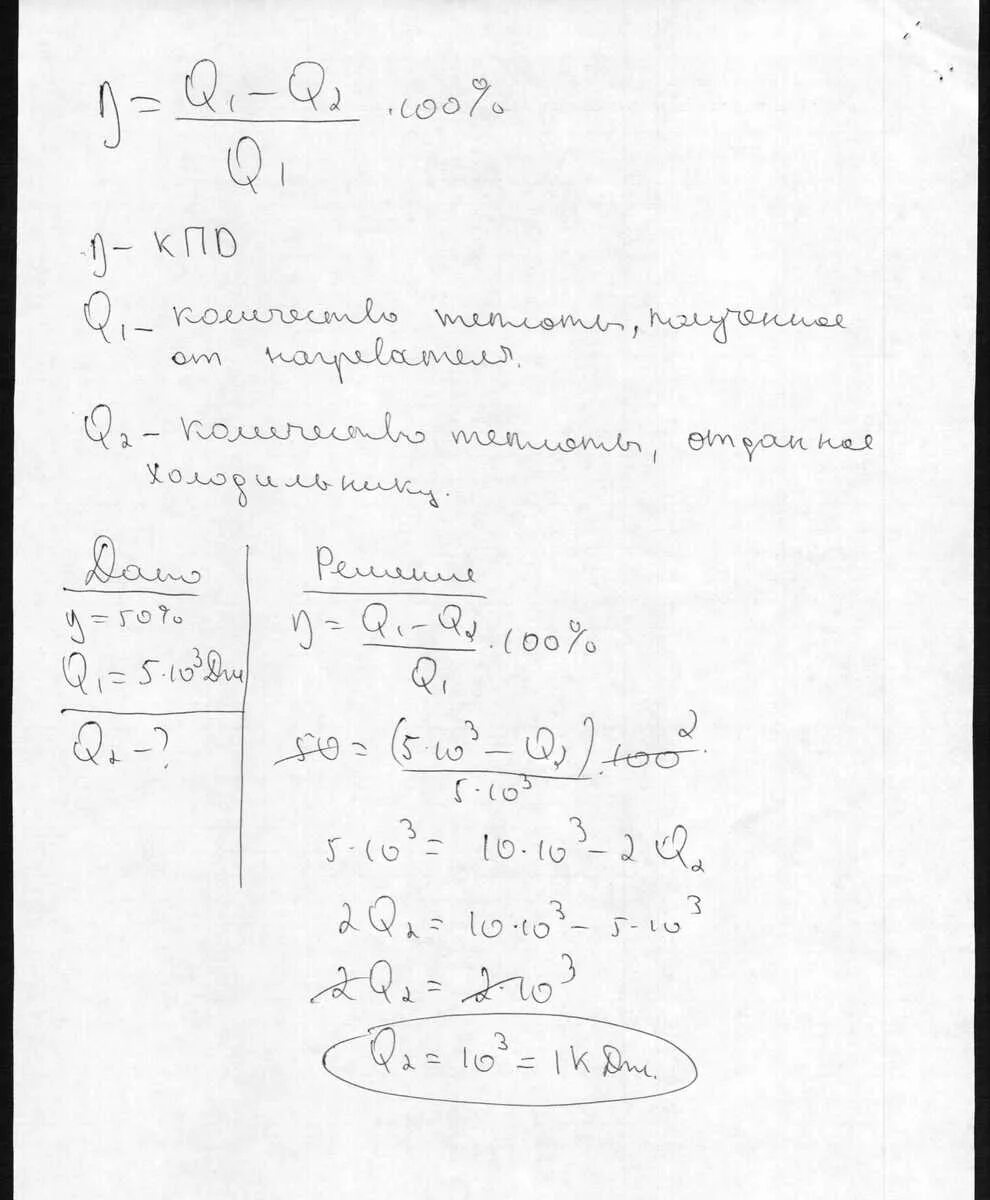 η = (Q₁ − Q₂) / Q₁ · 100%
η − КПД
Q₁ − количество теплоты, полученное
от нагревателя.
Q₂ − количество теплоты, отданное
холодильнику.
Дано
η = 50%
Q₁ = 5·10³ Дж
Q₂ − ?
Решение
η = (Q₁ − Q₂) / Q₁ · 100%
50 = (5·10³ − Q₂) / 5·10³ · 100 2
5·10³ = 10·10³ − 2Q₂
2Q₂ = 10·10³ − 5·10³
2Q₂ = 2·10³
Q₂ = 10³ = 1кДж.